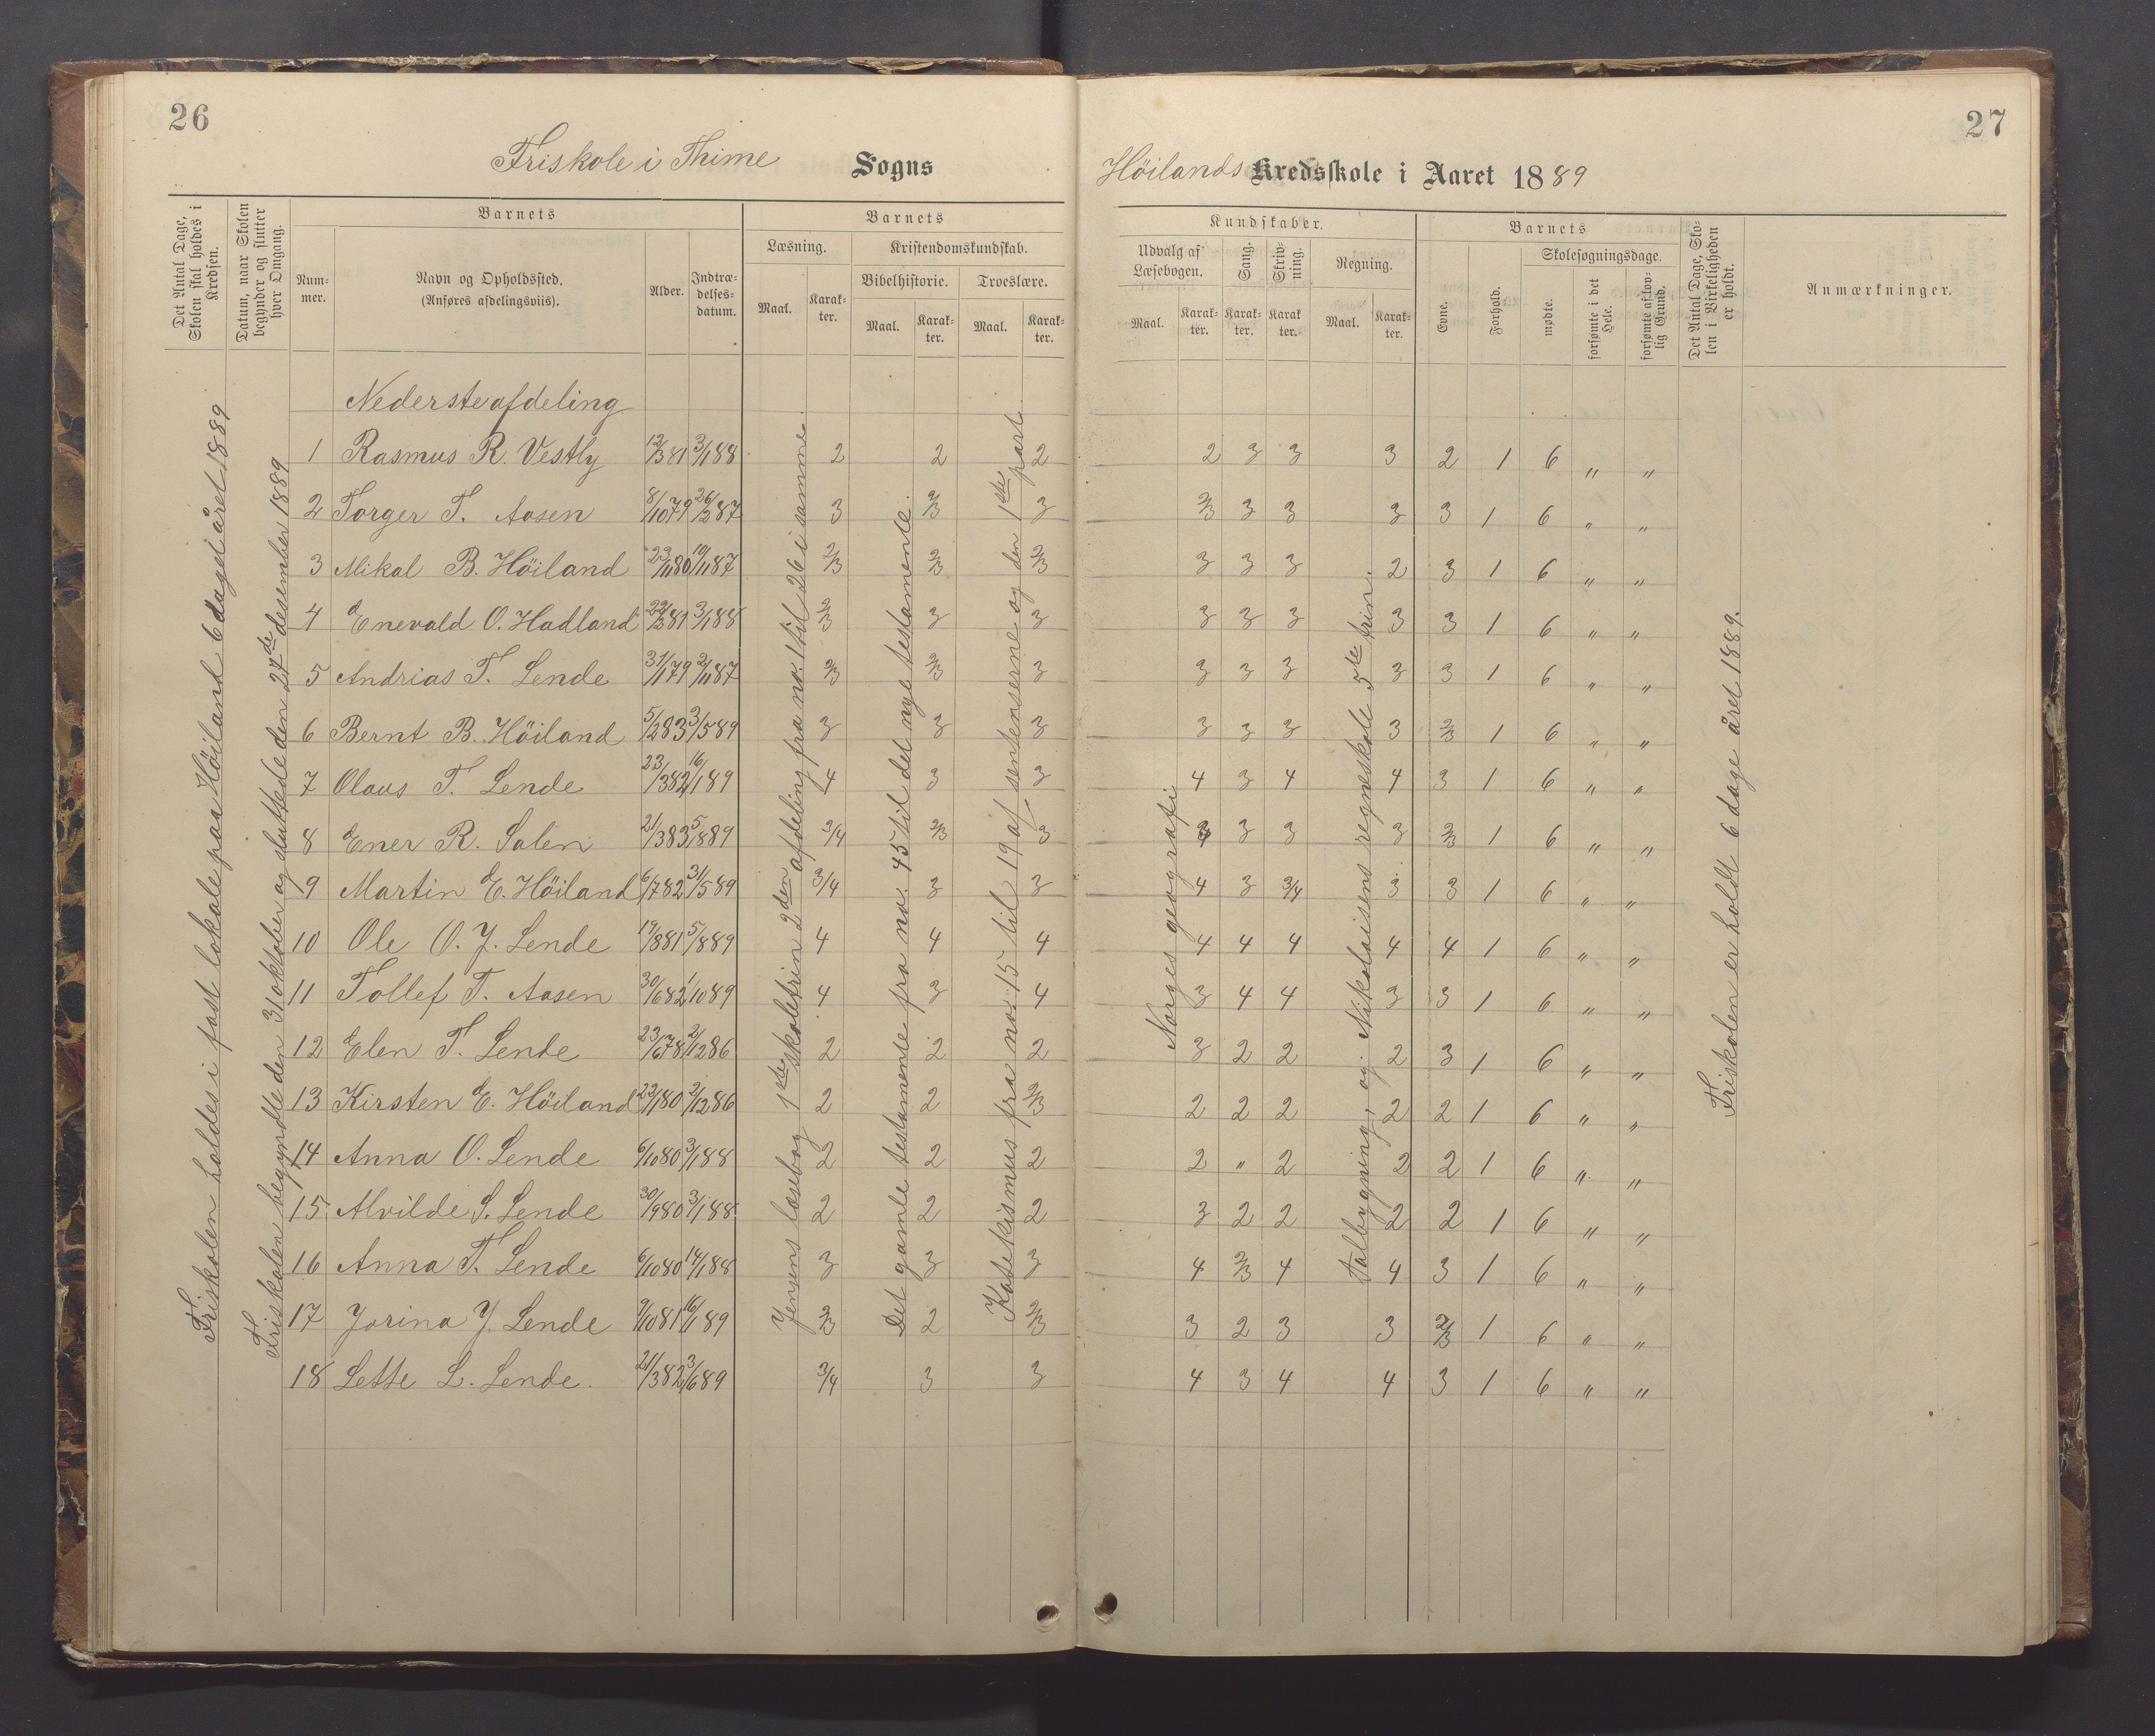 26
Friskole i Thime Sogns
Det Antal Dage, Skolen skal holdes i Kredsen.
Datum, naar Skolen begynder og slutter hver Omgang.
Barnets
Nummer.
Navn og Opholdssted.
(Anføres afdelingsviis).
Alder.
Indtrædelsesdatum.
Barnets
Læsning.
Kristendomskundskab.
Bibelhistorie.
Troeslære.
Maal.
Karakter.
Maal.
Karakter.
Maal.
Karakter.
Friskolen holdes i fast lokale paa Höiland 6 dage i året 1889
Friskolen begyndte den 31 oktober og sluttede den 27de desember 1889
Jensens læsebog 1ste skoletrin 2den afdeling fra no. 1 til 26 i samme
Det gamle testamente fra no. 45 til det nye testamente.
Katekismus fra no. 15 til 19 af sentenserne og den 1ste part
Nederste afdeling
1 Rasmus R. Vestly 12/3 81 3/1 88 2 2 2
2 Torger T. Aasen 8/10 79 26/2 87 3 2/3 3
3 Mikal B. Höiland 23/11 80 10/11 87 2/3 2/3 2/3
4 Enevald O. Hadland 22/3 81 3/1 88 2/3 3 3
5 Andrias T. Lende 31/1 79 2/11 87 2/3 2/3 3
6 Bernt B. Höiland 5/2 83 3/5 89 3 3 3
7 Olaus T. Lende 23/3 82 16/1 89 4 3 3
8 Ener R. Salen 21/3 83 5/8 89 3/4 2/3 3
9 Martin E. Höiland 6/7 82 31/5 89 3/4 3 3
10 Ole O. J. Lende 19/8 81 5/8 89 4 4 4
11 Tollef T. Aasen 30/6 82 1/10 89 4 3 4
12 Elen T. Lende 23/6 78 2/12 86 2 2 2
13 Kirsten E. Höiland 22/1 80 2/12 86 2 2 2/3
14 Anna O. Lende 6/10 80 3/1 88 2 2 2
15 Alvilde S. Lende 30/9 80 3/1 88 2 2 2
16 Anna T. Lende 6/10 80 14/1 88 3 3 3
17 Jorina J. Lende 9/10 81 16/1 89 2/3 2 2/3
18 Lette L. Lende. 21/3 82 3/6 89 3/4 3 3
27
Höilands Kredsskole i Aaret 1889
Kundskaber.
Udvalg af Læsebogen.
Sang.
Skrivning.
Regning.
Maal.
Karakter.
Karakter.
Karakter.
Maal.
Karakter.
Barnets
Evne.
Forhold.
Skolesøgningsdage.
mødte.
forsømte i det Hele.
forsømte af lovlig Grund.
Det Antal Dage, Skolen i Virkeligheden er holdt.
Anmærkninger.
Norges geografi
Talbygning, og Nikolaisens regneskole 5te trin.
Friskolen er holdt 6 dage året 1889.
2 3 3 3 2 1 6 " "
2/3 3 3 3 3 1 6 " "
3 3 3 2 3 1 6 " "
3 3 3 3 3 1 6 " "
3 3 3 3 3 1 6 " "
3 3 3 3 2/3 1 6 " "
4 3 4 4 3 1 6 " "
3 3 3 2/3 1 6 " "
4 3 3/4 3 3 1 6 " "
4 4 4 4 4 1 6 " "
3 4 4 3 3 1 6 " "
3 2 2 2 3 1 6 " "
2 2 2 2 2 1 6 " "
2 " 2 2 2 1 6 " "
3 2 2 2 2 1 6 " "
4 2/3 4 4 3 1 6 " "
3 2 3 3 2/3 1 6 " "
4 3 4 4 3 1 6 " "